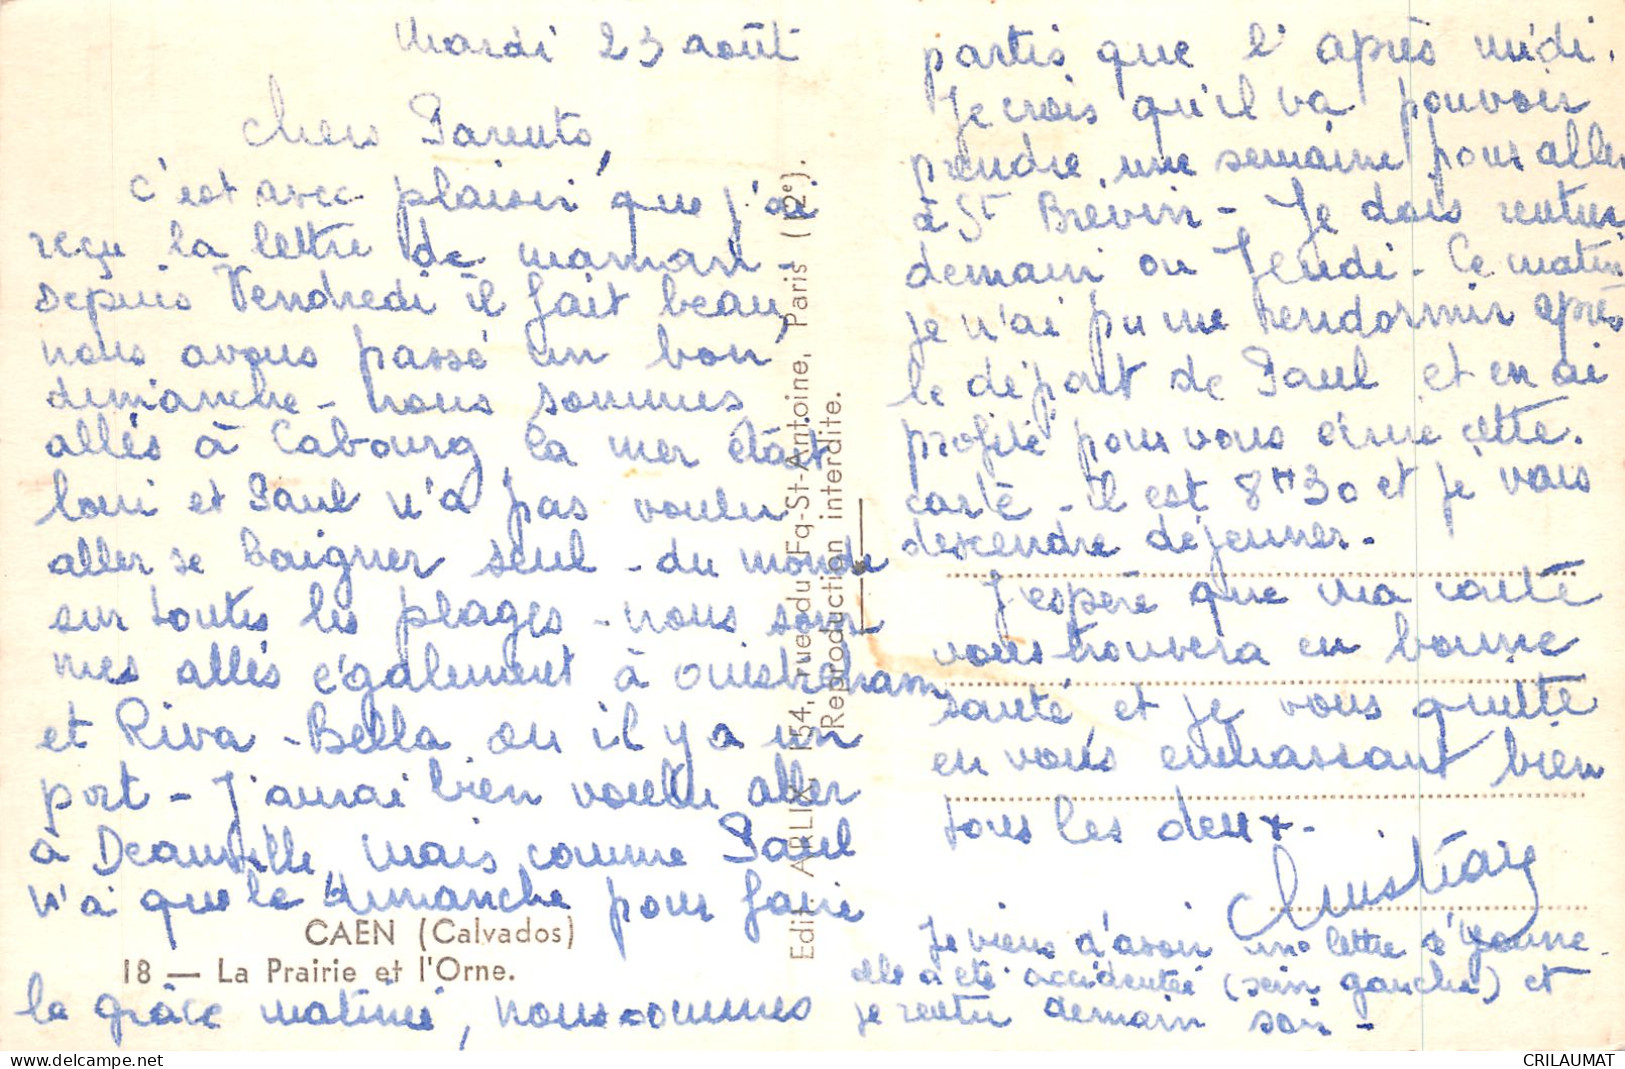 Mardi 23 août
Chers Parents,
c'est avec plaisir que j'ai
reçu la lettre de maman.
Depuis Vendredi il fait beau,
nous avons passé un bon
dimanche - nous sommes
allés à Cabourg, la mer était
loin et Paul n'a pas voulu
aller se baigner seul - du monde
sur toutes les plages - nous som-
mes allés également à Ouistreham
et Riva-Bella ou il y a un
port - J'aurai bien voulu aller
à Deauville, mais comme Paul
n'a que le dimanche pour faire
la grâce matinée, nous sommes
partis que l'après midi.
Je crois qu'il va pouvoir
prendre une semaine pour aller
à St Brévin - Je dois rentrer
demain ou Jeudi - Ce matin
je n'ai pu me rendormir après
le départ de Paul et en ai
profité pour vous écrire cette
carte - il est 8H30 et je vais
descendre déjeuner -
J'espère que ma carte
vous trouvera en bonne
santé et je vous quitte
en vous embrassant bien
tous les deux -
Christiane
Je viens d'avoir une lettre d'Yvonne
elle a été accidentée (sein gauche) et
je rentre demain soir -
CAEN (Calvados)
18 — La Prairie et l'Orne.
Edit. ARLIX, 154, rue du Fg-St-Antoine, Paris (12e).
Reproduction interdite.
CRILAUMAT